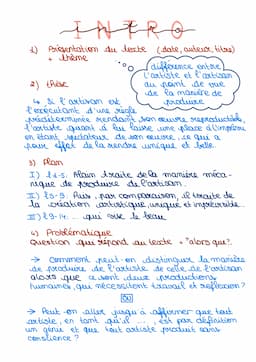 INTRO
1) Présentation du texte (date, auteur, titre)
+ thème
différence entre
l'artiste et l'artisan
au point de vue
de la manière de
produire
2) thèse
↳ Si l'artisan est
l'exécutant d'une règle
prédéterminée rendant son oeuvre reproductible,
l'artiste quant à lui laisse une place à l'imprévu
en étant spectateur de son oeuvre, ce qui a
pour effet de la rendre unique et belle.
3) Plan
I) l.1-5. Alain traite de la manière méca-
nique de produire de l'artisan.
II) l.5-9. Puis, par comparaison, il traite de
la création artistique, unique et imprévisible.
III) l.9-14. ... qui crée le beau
4) Problématique
question qui répond au texte + "alors que".
→ Comment peut-on distinguer la manière
de produire de l'artiste de celle de l'artisan
alors que ce sont deux productions
humaines, qui nécessitent travail et réflexion?
OU
→ Peut-on aller jusqu'à affirmer que tout
artiste, en tant qu'il ... , est par définition
un génie et que tout artiste produit sans
conscience ?